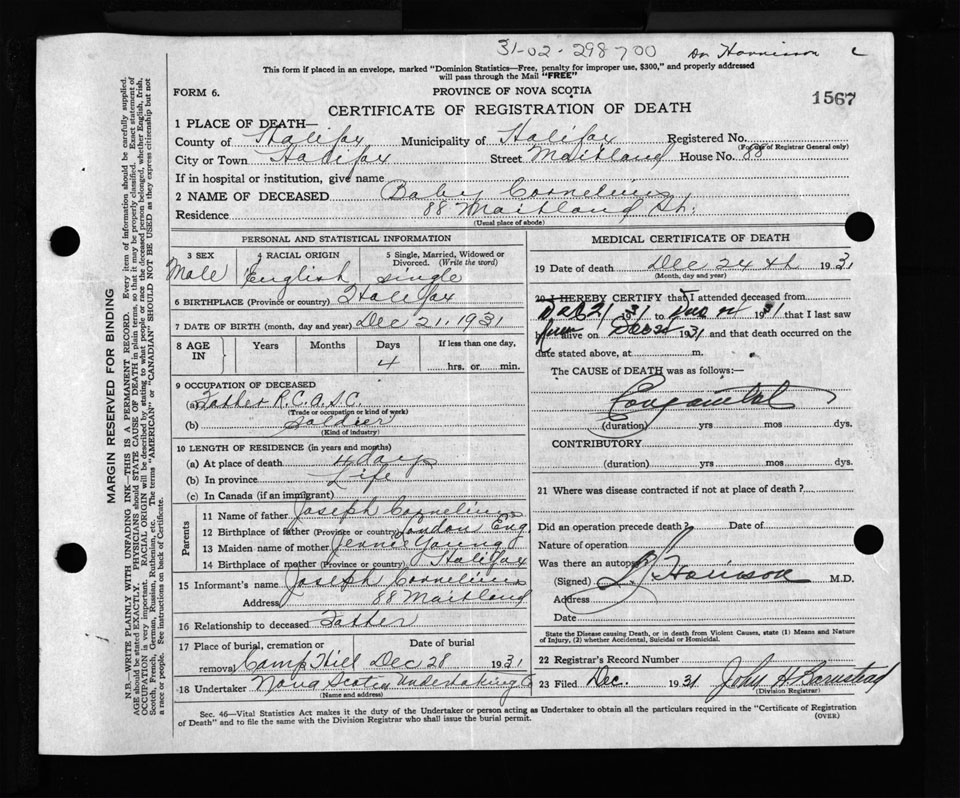 31-02-298700 Dr Harrison C
This form if placed in an envelope, marked "Dominion Statistics—Free, penalty for improper use, $300," and properly addressed
will pass through the Mail "FREE"
FORM 6. PROVINCE OF NOVA SCOTIA
CERTIFICATE OF REGISTRATION OF DEATH 1567
1 PLACE OF DEATH—
County of Halifax Municipality of Halifax Registered No.
(For use of Registrar General only)
City or Town Halifax Street Maitland House No. 88
If in hospital or institution, give name
2 NAME OF DECEASED Baby Cornelius
Residence 88 Maitland St.
(Usual place of abode)
PERSONAL AND STATISTICAL INFORMATION
3 SEX 4 RACIAL ORIGIN 5 Single, Married, Widowed or
Divorced. (Write the word)
Male English single
6 BIRTHPLACE (Province or country) Halifax
7 DATE OF BIRTH (month, day and year) Dec 21, 1931
8 AGE IN Years Months Days If less than one day,
4 hrs. or min.
9 OCCUPATION OF DECEASED
(a) Father R.C.A.S.C.
(Trade or occupation or kind of work)
(b) Soldier
(Kind of industry)
10 LENGTH OF RESIDENCE (in years and months)
(a) At place of death 4 days
(b) In province Life
(c) In Canada (if an immigrant)
Parents
11 Name of father Joseph Cornelius
12 Birthplace of father (Province or country) London Eng
13 Maiden name of mother Jennie Young
14 Birthplace of mother (Province or country) Halifax
15 Informant's name Joseph Cornelius
Address 88 Maitland
16 Relationship to deceased Father
17 Place of burial, cremation or removal Date of burial
Camp Hill Dec 28 1931
18 Undertaker Nova Scotia Undertaking Co
(Name and address)
MEDICAL CERTIFICATE OF DEATH
19 Date of death Dec 24th 1931
(Month, day and year)
20 I HEREBY CERTIFY that I attended deceased from
Dec 21 1931 to 1931 that I last saw
alive on Dec 24 1931 and that death occurred on the
date stated above, at m.
The CAUSE of DEATH was as follows:—
Congenital
(duration) yrs mos dys.
CONTRIBUTORY
(duration) yrs mos dys.
21 Where was disease contracted if not at place of death?
Did an operation precede death? Date of
Nature of operation
Was there an autopsy?
(Signed) Harrison M.D.
Address
Date
State the Disease causing Death, or in death from Violent Causes, state (1) Means and Nature
of Injury, (2) whether Accidental, Suicidal or Homicidal.
22 Registrar's Record Number
23 Filed Dec. 1931 John H Barnstead
(Division Registrar)
Sec. 46—Vital Statistics Act makes it the duty of the Undertaker or person acting as Undertaker to obtain all the particulars required in the "Certificate of Registration
of Death" and to file the same with the Division Registrar who shall issue the burial permit.
(OVER)
MARGIN RESERVED FOR BINDING
N.B.—WRITE PLAINLY WITH UNFADING INK—THIS IS A PERMANENT RECORD. Every item of information should be carefully supplied.
AGE should be stated EXACTLY. PHYSICIANS should STATE CAUSE OF DEATH in plain terms, so that it may be properly classified. Exact statement of
OCCUPATION is very important. RACIAL ORIGIN will be described by stating to what people or race the deceased person belonged, whether English, Irish,
Scotch, French, German, Russian, Ruthenian, etc. The terms "AMERICAN" or "CANADIAN" SHOULD NOT BE USED as they express citizenship but not
a race or people. See instructions on back of Certificate.